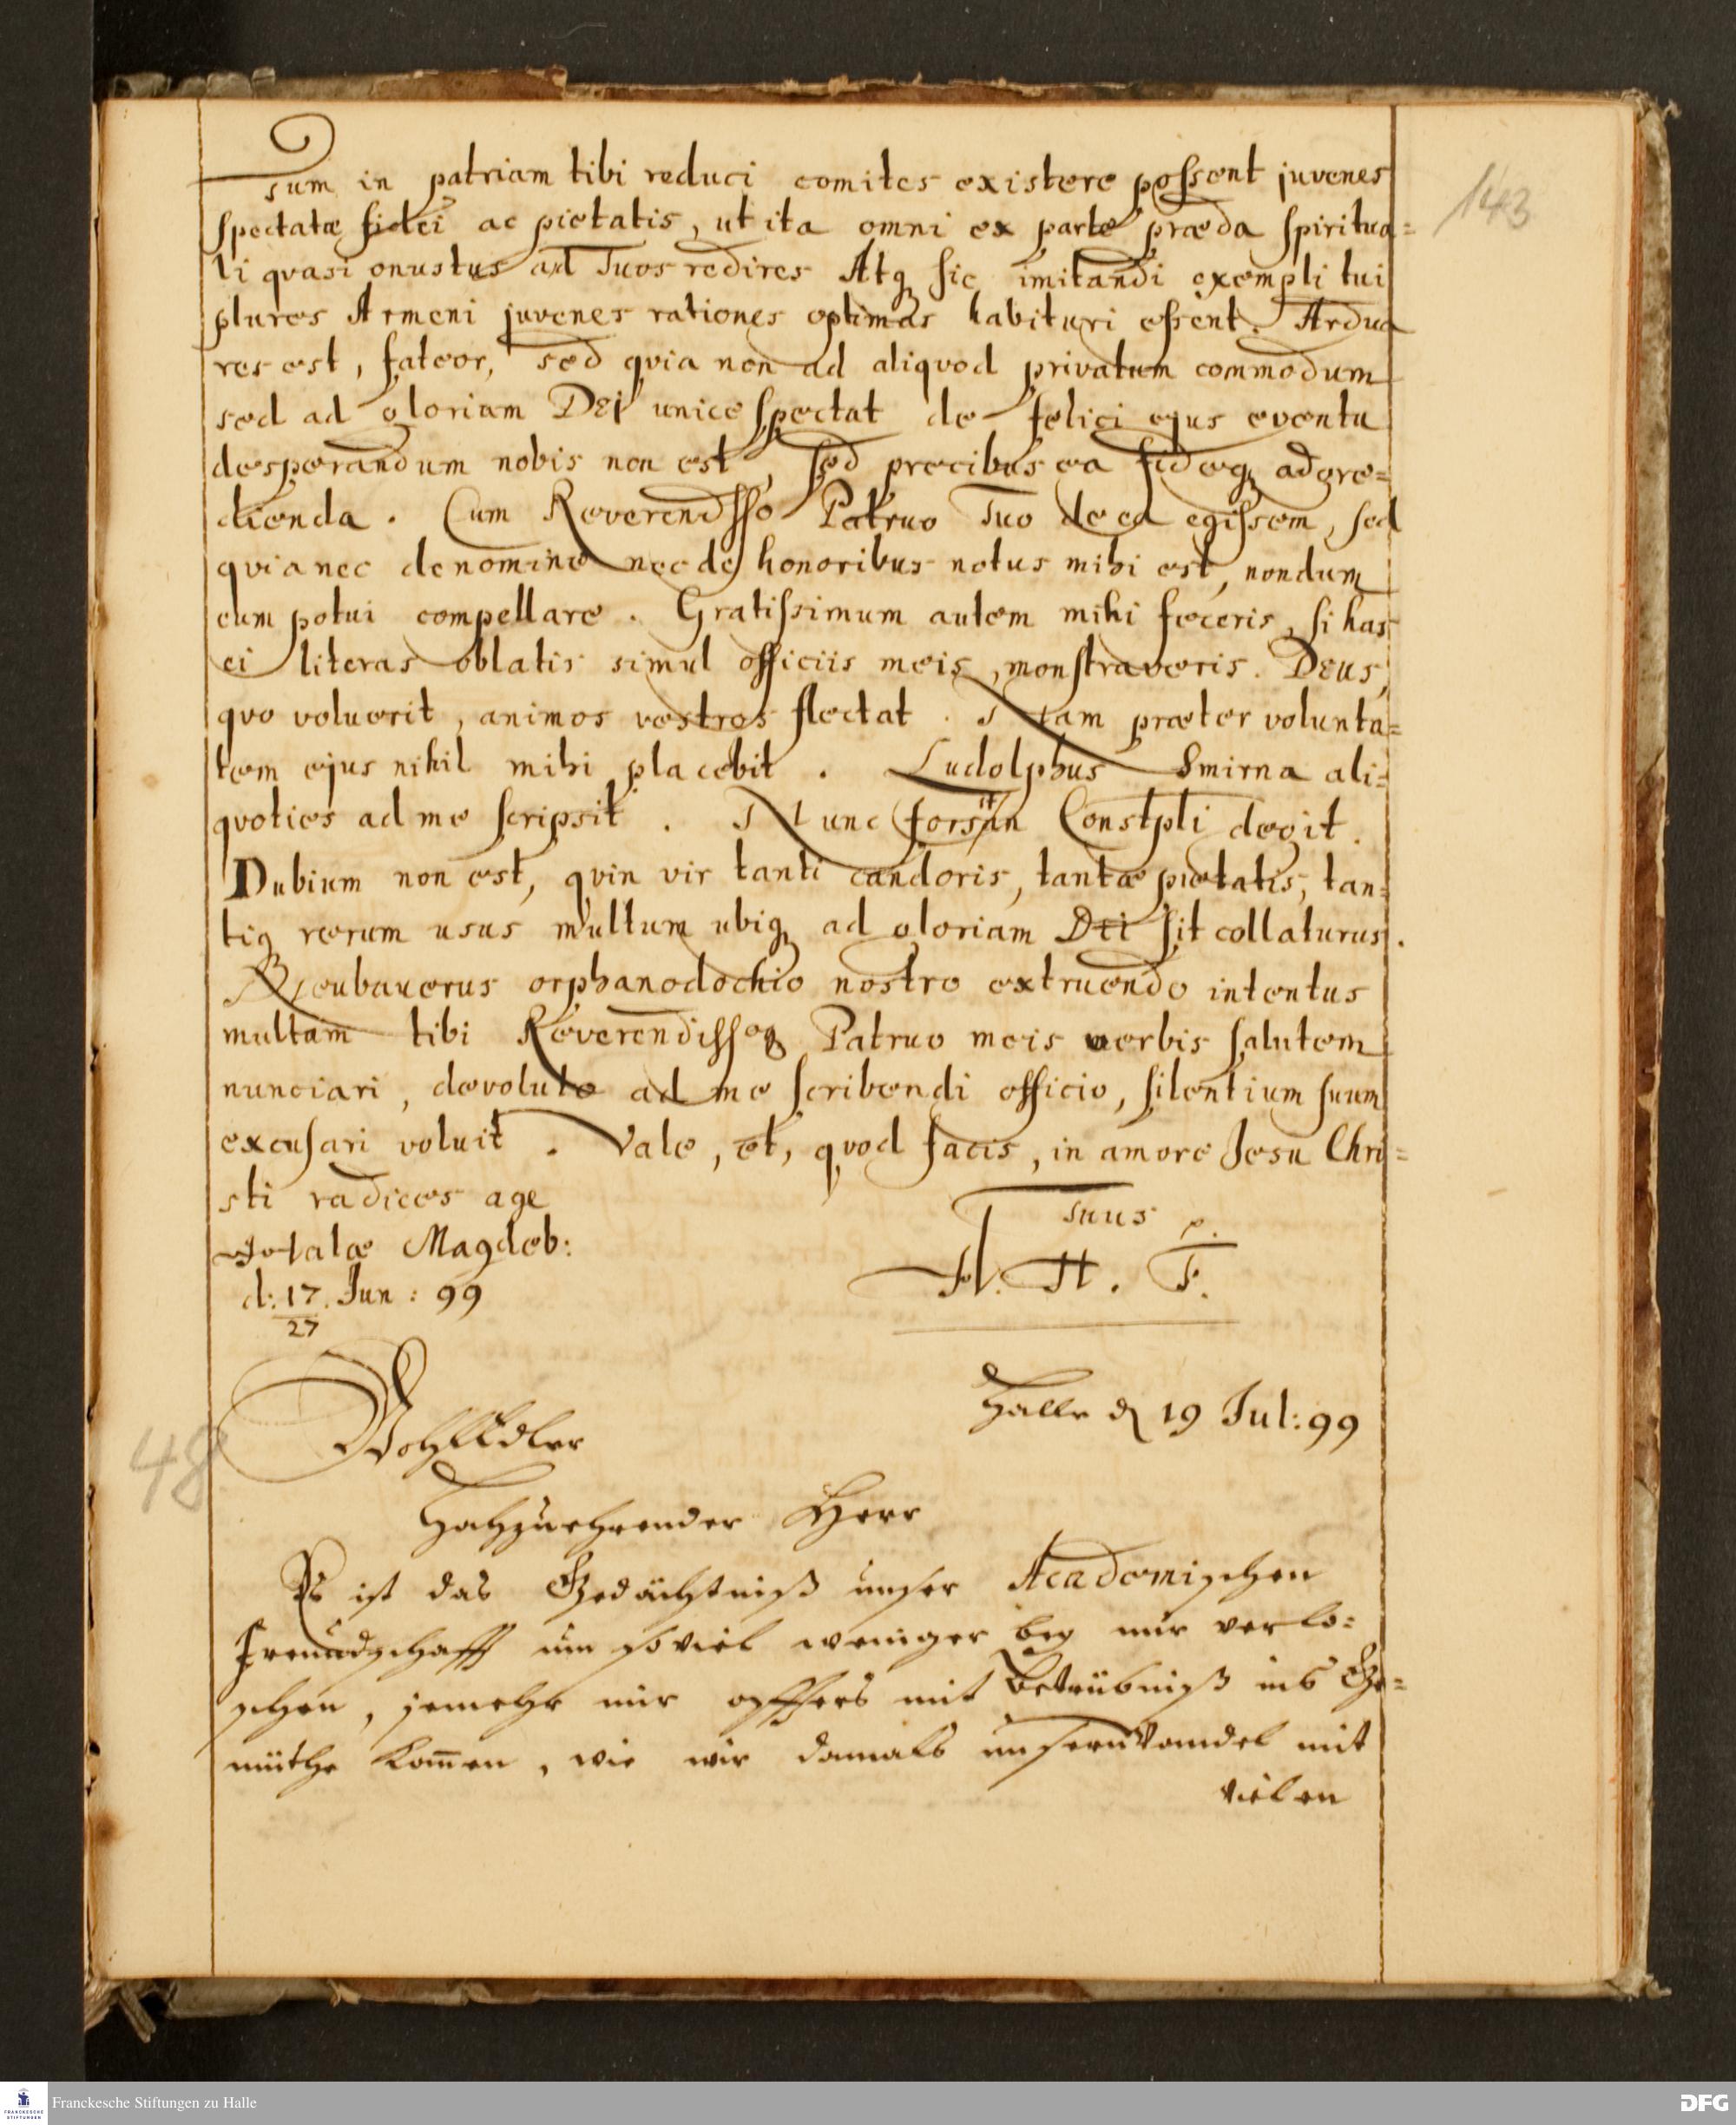 143
Tum in patriam tibi reduci comites existere possent juvenes
spectatæ fidei ac pietatis, ut ita omni ex parte præda spiritua=
li qvasi onustus ad Tuos redires Atq sic imitandi exempli tui
plures Armeni juvenes rationes optimas habituri essent. Ardua
res est, fateor, sed qvia non ad aliqvod privatum commodum
sed ad gloriam DEI unice spectat de felici ejus eventu
desperandum nobis non est, sed precibus ea fideq adgre=
dienda. Cum Reverendsso Patruo Tuo de ea egissem, sed
qvia nec de nomine nec de honoribus notus mihi est, nondum
eum potui compellare. Gratissimum autem mihi feceris, si has
ei literas oblatis simul officiis meis, monstraveris. DEUS,
qvo voluerit, animos vestros flectat. Nam præter volunta=
tem ejus nihil mihi placebit. Ludolphus Smirna ali=
qvoties ad me scripsit. Nunc forsitan Constpli degit.
Dubium non est, qvin vir tanti candoris, tantæ pietatis, tan=
tiq rerum usus multum ubiq ad gloriam DEI sit collaturus.
Neubauerus orphanodochio nostro extruendo intentus
multam tibi Reverendissoq Patruo meis verbis salutem
nunciari, devoluto ad me scribendi officio, silentium suum
excusari voluit. Vale, et, qvod facis, in amore Jesu Chri=
sti radices age
Halæ Magdeb:
d: 17. Jun: 99
27
Tuus p.
A. H. F.
Halle d 19 Jul: 99
48
WohlEdler
Hochzuehrender Herr
Es ist das Gedächtniß unser Academischen
Freundschafft um so viel weniger bey mir verlo=
schen, jemehr mir offters mit Betrübniß ins Ge=
müthe kom̄en, wie wir damals unsern Wandel mit
vielen
Franckesche Stiftungen zu Halle
FRANCKESCHE STIFTUNGEN
DFG